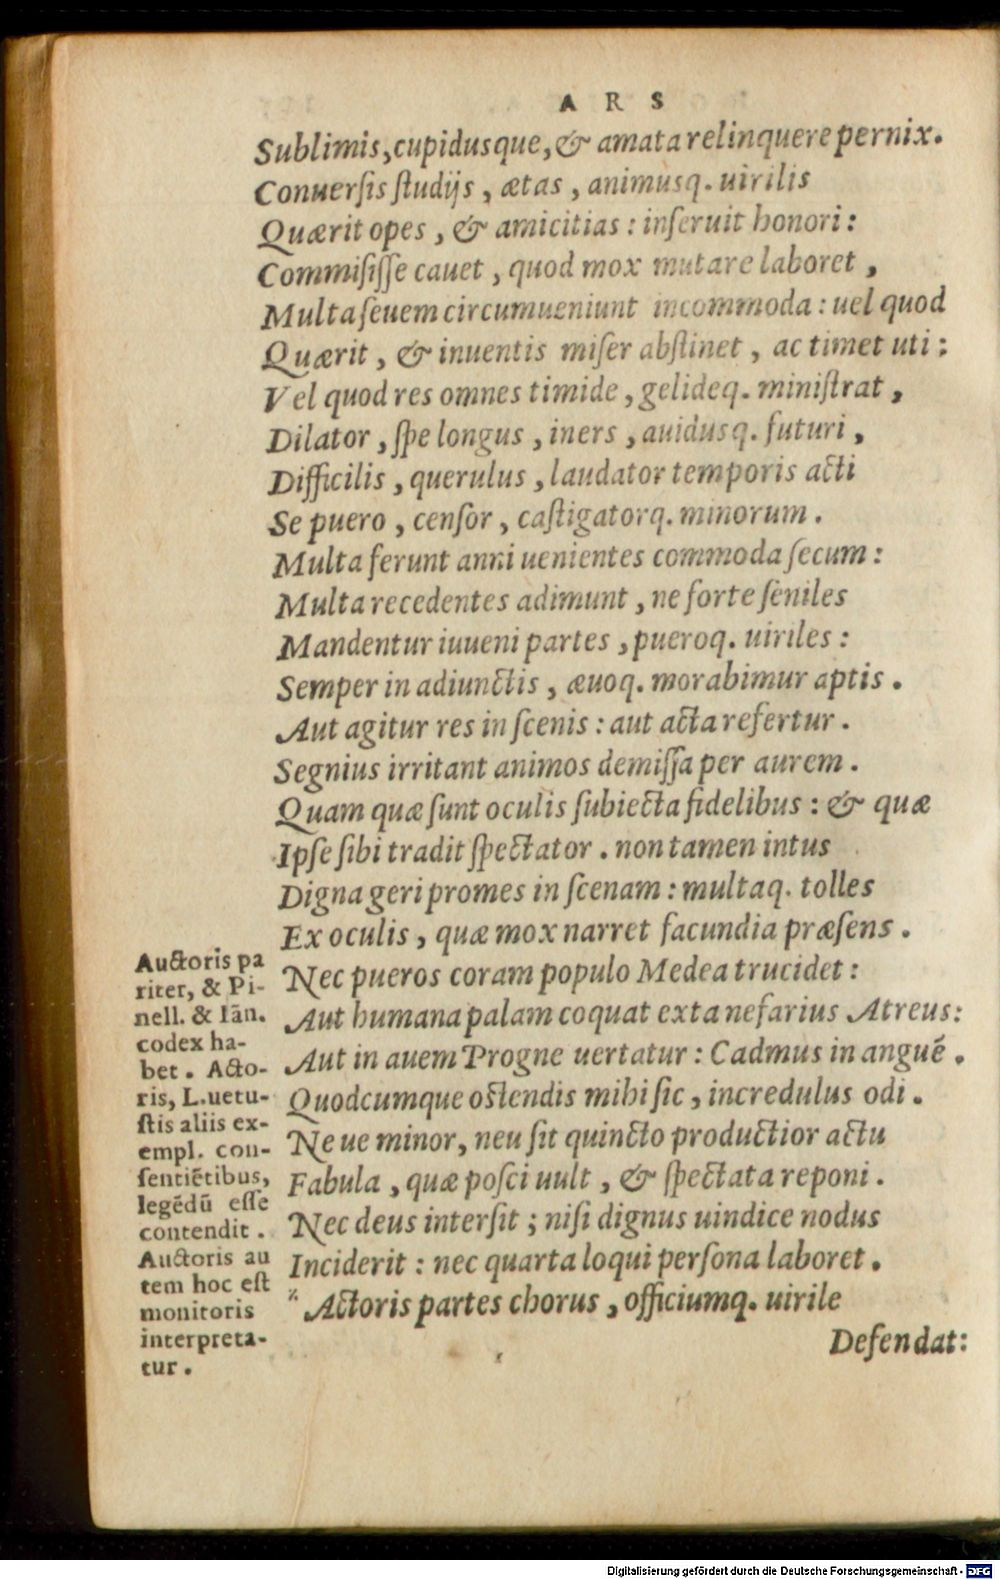 ARS
Sublimis, cupidusque, & amata relinquere pernix.
Conuerſis ſtudijs, ætas, animusq. uirilis
Quærit opes, & amicitias: inſeruit honori:
Commiſiſſe cauet, quod mox mutare laboret,
Multa ſeuem circumueniunt incommoda: uel quod
Quærit, & inuentis miſer abſtinet, ac timet uti:
Vel quod res omnes timide, gelideq. miniſtrat,
Dilator, ſpe longus, iners, auidusq. futuri,
Difficilis, querulus, laudator temporis acti
Se puero, cenſor, caſtigatorq. minorum.
Multa ferunt anni uenientes commoda ſecum:
Multa recedentes adimunt, ne forte ſeniles
Mandentur iuueni partes, pueroq. uiriles:
Semper in adiunctis, æuoq. morabimur aptis.
Aut agitur res in ſcenis: aut acta refertur.
Segnius irritant animos demiſſa per aurem.
Quam quæ ſunt oculis ſubiecta fidelibus: & quæ
Ipſe ſibi tradit ſpectator. non tamen intus
Digna geri promes in ſcenam: multaq. tolles
Ex oculis, quæ mox narret facundia præſens.
Nec pueros coram populo Medea trucidet:
Aut humana palam coquat exta nefarius Atreus:
Aut in auem Progne uertatur: Cadmus in anguē.
Quodcumque oſtendis mihi ſic, incredulus odi.
Ne ue minor, neu ſit quincto productior actu
Fabula, quæ poſci uult, & ſpectata reponi.
Nec deus interſit; niſi dignus uindice nodus
Inciderit: nec quarta loqui perſona laboret.
Actoris partes chorus, officiumq. uirile
Defendat:
Auctoris pa
riter, & Pi-
nell. & Iān.
codex ha-
bet. Acto-
ris, L.uetu-
ſtis aliis ex-
empl. con-
ſentiētibus,
legēdū eſſe
contendit.
Auctoris au
tem hoc eſt
monitoris
interpreta-
tur.
Digitalisierung gefördert durch die Deutsche Forschungsgemeinschaft - DFG